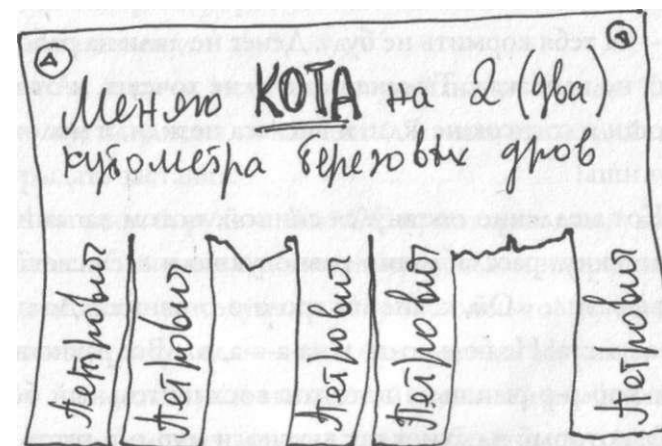 Меняю КОТА на 2 (два)
кубометра березовых дров
Петрович
Петрович
Петрович
Петрович
Петрович